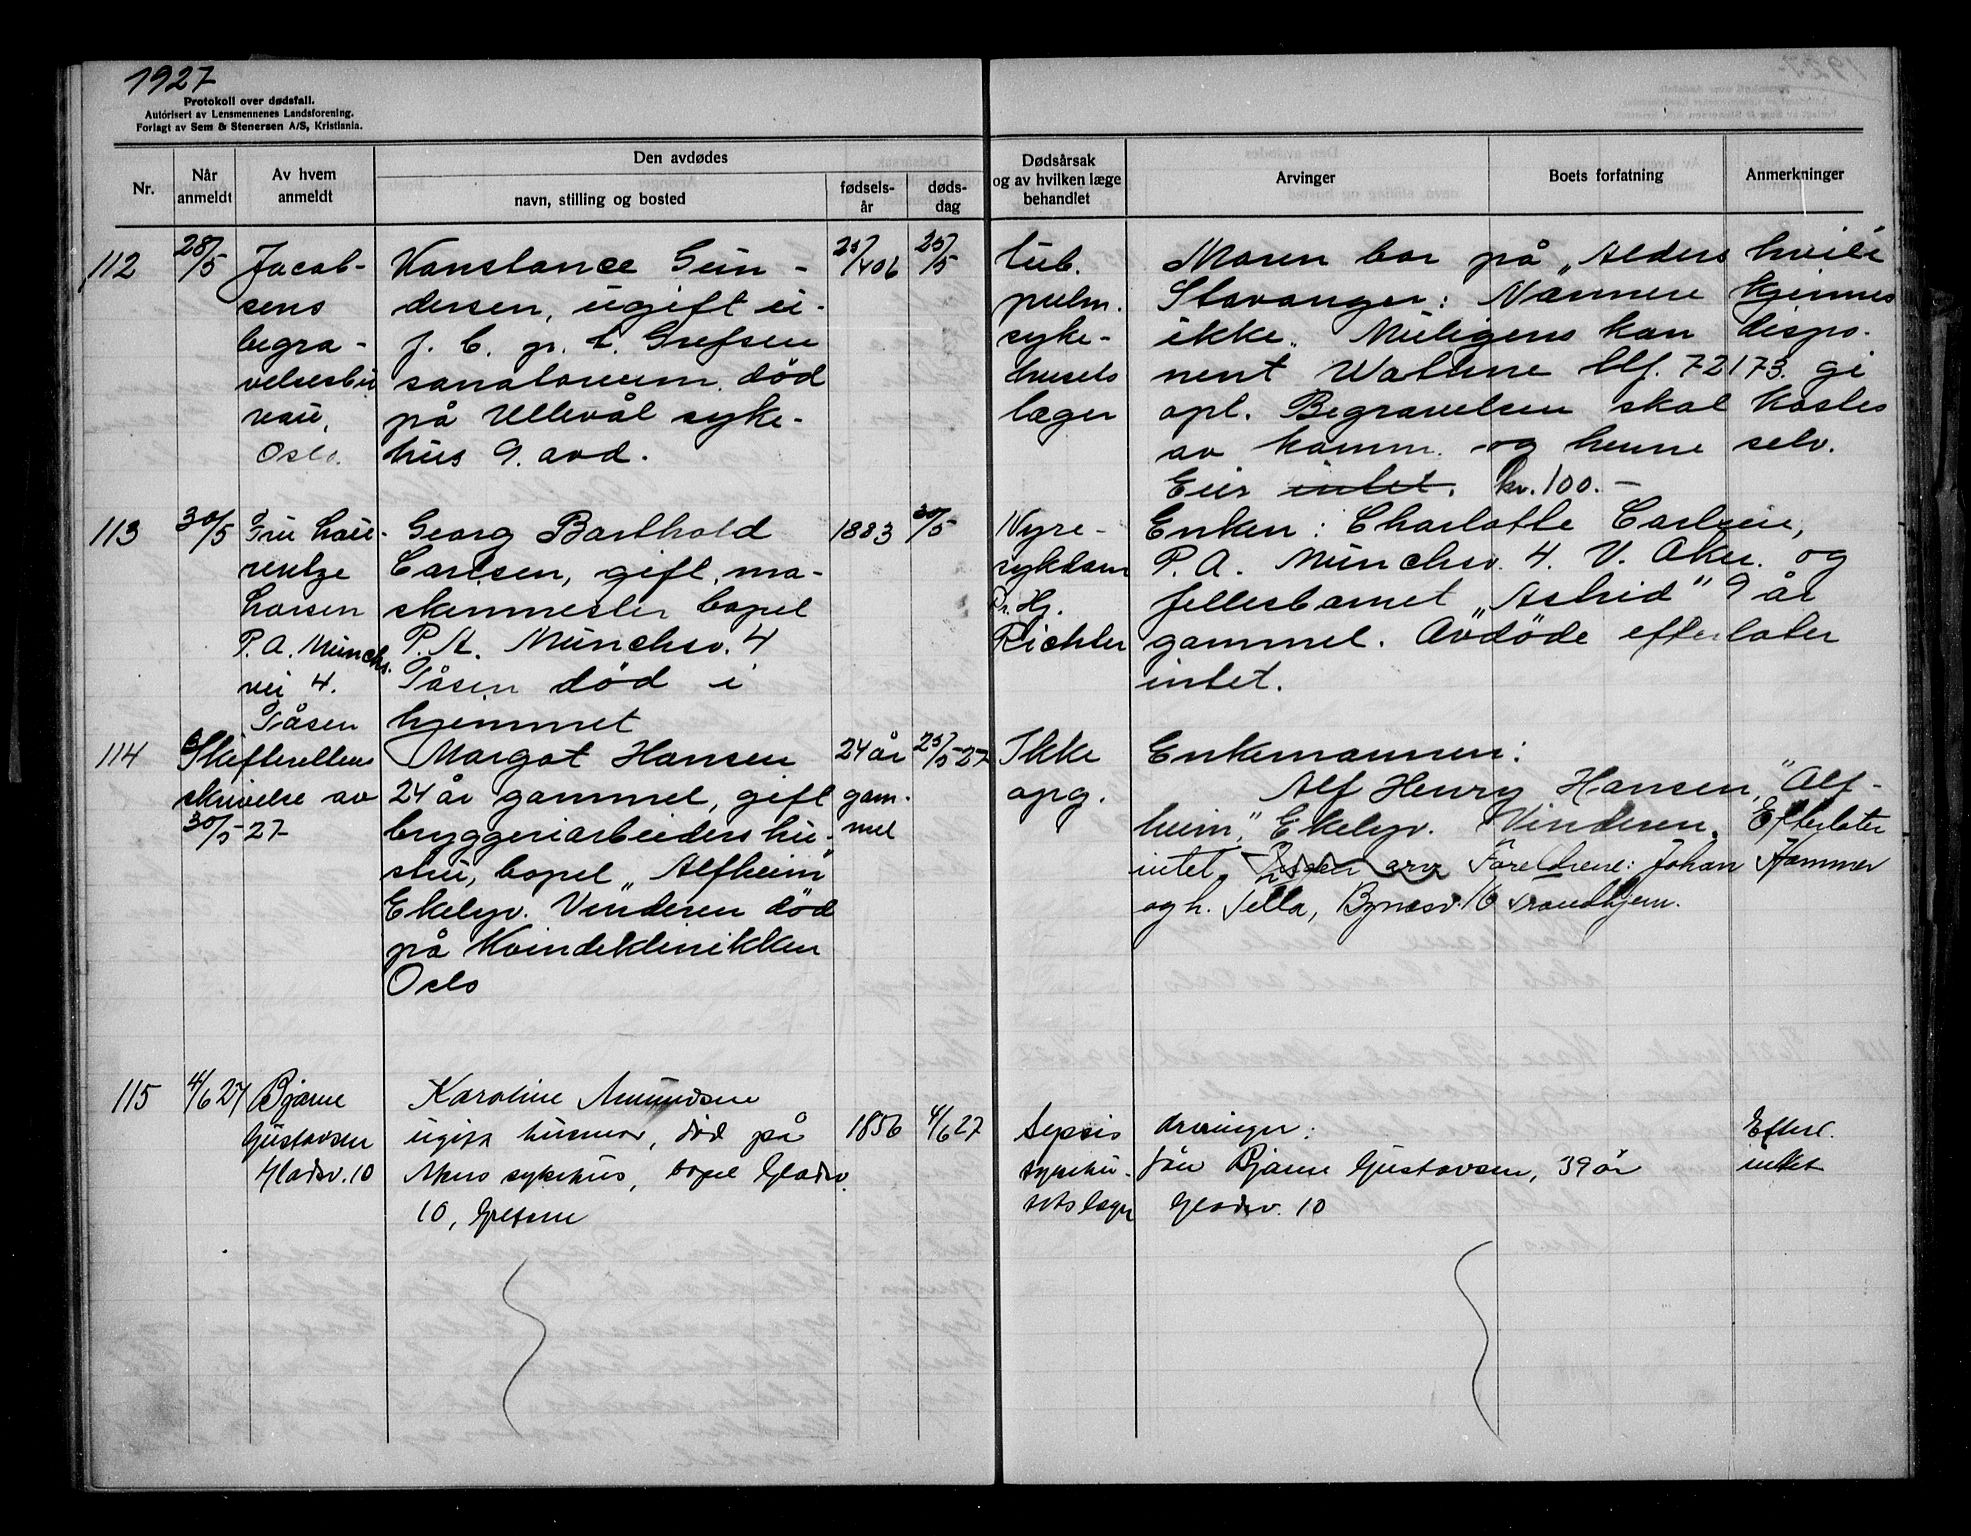 1927
Protokoll over dødsfall.
Autorisert av Lensmennenes Landsforening.
Forlagt av Sem & Stenersen A/S, Kristiania.
Nr.
Når anmeldt
Av hvem anmeldt
Den avdødes
navn, stilling og bosted
fødsels-år
døds-dag
Dødsårsak og av hvilken læge behandlet
Arvinger
Boets forfatning
Anmerkninger
112
28/5
Jacob-
sens
begra-
velsesbü
rau,
Oslo.
Konstance Gün-
dersen, ugift
f. C. gr. L. Grefsen
sanatorium. død
på Ullevål syke-
hus 9. avd.
25/5
tub.
pulm.
syke-
husets
læger
Moren bor på "Alders hvile
Stavanger: Nærmere kjennes
ikke. Muligens kan dispo-
nent Wathne tlf. 72173. gi
opl. Begravelsen skal kostes
av komm. og henne selv.
Eier intet. kr. 100.-
113
30/5
Fru Lau-
rentze
Larsen
P. A. Munchs.
vei 4.
Tåsen
Georg Barthold
Carlsen, gift, ma-
skinmester bopel
P. A. Munchsv. 4
Tåsen død i
hjemmet
1883
30/5
Nyre-
sykdom
Dr. Hj.
Richter
Enken: Charlotte Carlsen,
P. A. Munchsv. 4. V. Aker. og
fellesbarnet "Astrid" 9 år
gammel. Avdøde efterlater
intet.
114
Skifterettens
skrivelse av
30/5-27
Margot Hansen
24 år gammel, gift
bryggeriarbeiders hu-
stru, bopel "Alfheim"
Ekelyv. Vinderen død
på Kvindeklinikken
Oslo
24 år
gam-
mel
25/5-27
Ikke
opg.
Enkemannen:
Alf Henry Hansen, "Alf-
heim," Ekelyv. Vinderen. Efterlater
intet. Foreldrene: Johan Hammer
og h. Tella, Bynesv. 16 Trondhjem.
115
4/6 27
Bjarne
Gustavsen
Gladsv. 10
Karoline Amundsen
ugift husmor, død på
Akers sykehus, bopel Gladsv.
10, Grefsen
1856
4/6 27
Sepsis
sykehu-
sets læger
Arvinger:
Søn Bjarne Gustavsen, 39 år
Gladsv. 10
Efterl.
intet